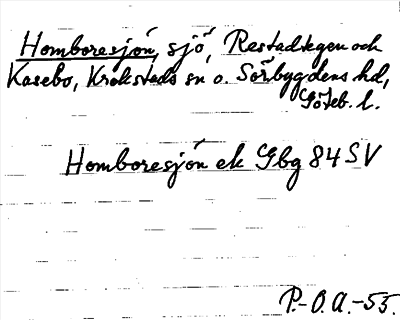 Homboresjön, sjö, Restadtegen och
Kasebo, Krokstads sn o. Sörbygdens hd,
Göteb. l.
Homboresjön ek Gbg 84 SV
P.-O.A.-55.